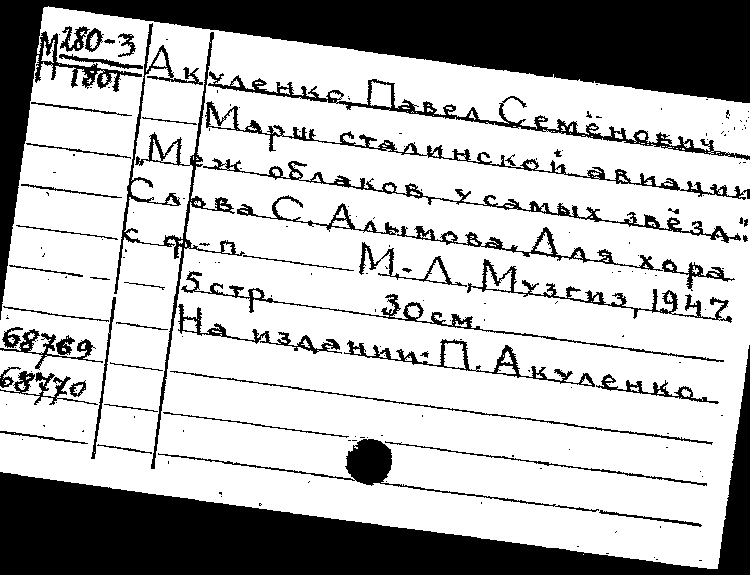 М 280-3
1801
Акуленко, Павел Семёнович
Марш сталинской авиации
„Меж облаков, у самых звёзд".
Слова С. Алымова. Для хора
с ф.-п. М.-Л., Музгиз, 1947.
5 стр. 30 см.
На издании: П. Акуленко.
68769
68770